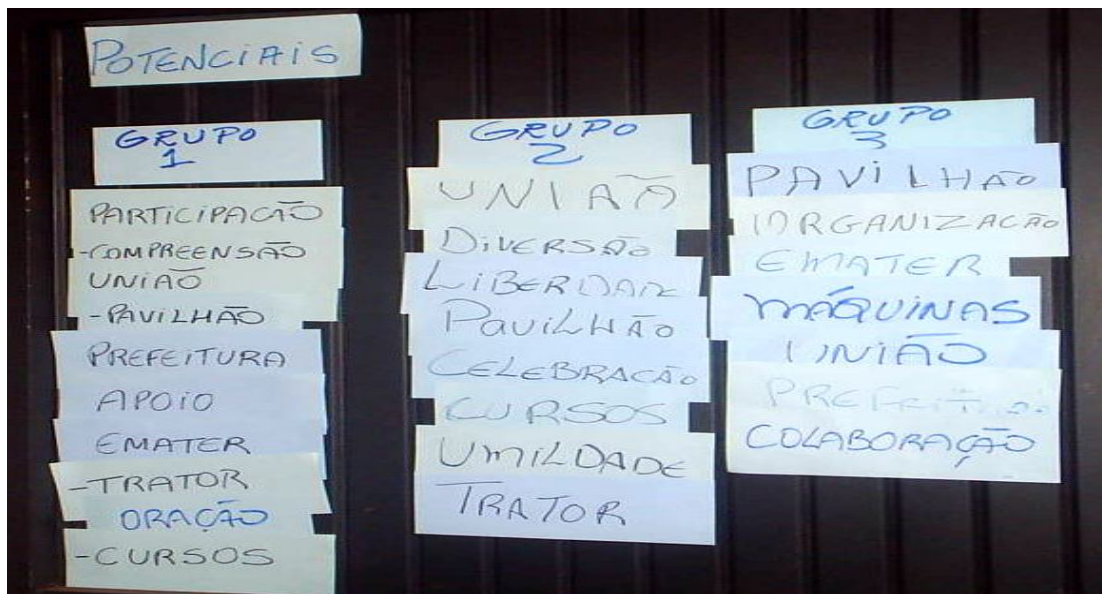 POTENCIAIS
GRUPO
1
PARTICIPAÇÃO
-COMPREENSÃO
UNIÃO
-PAVILHÃO
PREFEITURA
APOIO
EMATER
-TRATOR
ORAÇÃO
-CURSOS
GRUPO
2
UNIÃO
DIVERSÃO
LIBERDADE
PAVILHÃO
CELEBRACÃO
CURSOS
UMILDADE
TRATOR
GRUPO
3
PAVILHÃO
ORGANIZACÃO
EMATER
MÁQUINAS
UNIÃO
COLABORAÇÃO